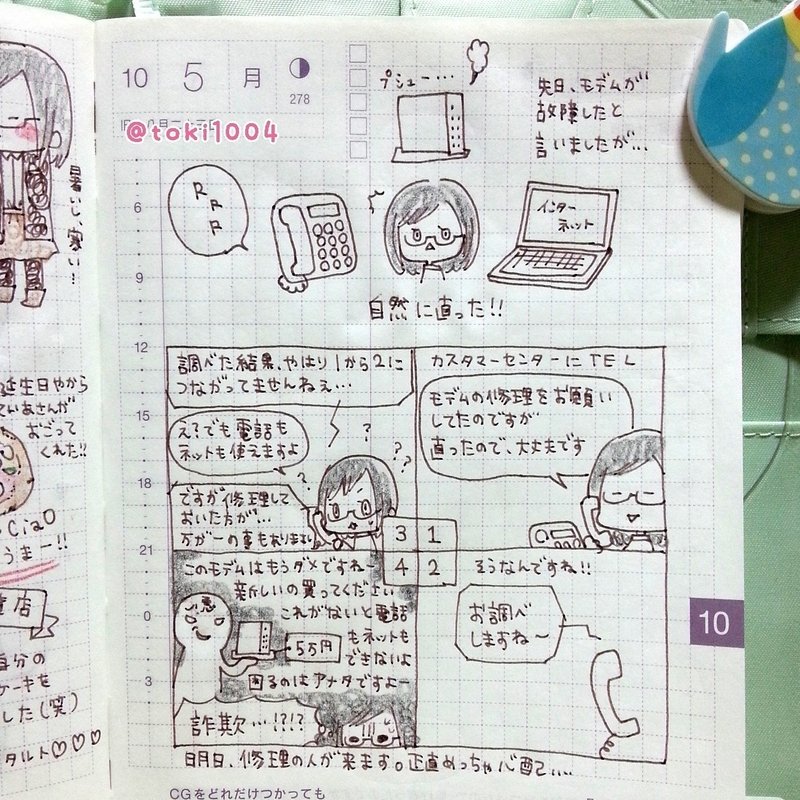 10 5 月
278
@toki1004
プシュー…
先日、モデムが
故障したと
言いましたが…
RRR
インター
ネット
自然に直った!!
カスタマーセンターにTEL
モデムの修理をお願い
してたのですが
直ったので、大丈夫です
1
そうなんですね!!
お調べ
しますね〜
2
調べた結果、やはり1から2に
つながってませんねぇ…
え?でも電話も
ネットも使えますよ
? ? ? ?
ですが修理して
おいた方が…
万が一の事もあります
3
このモデムはもうダメですね〜
新しいの買ってください
これがないと電話
もネットも
できないよ
困るのはアナタですよー
悪
5万円
詐欺…!?!?
4
明日、修理の人が来ます。正直めっちゃ心配…
6
9
12
15
18
21
0
3
10
CGをどれだけつかっても
暑いし、寒い…
生日やから
ていあさんが
おごって
くれた!!
Ciao
うまー!!
店
自分の
ケーキを
した(笑)
タルト♡♡♡